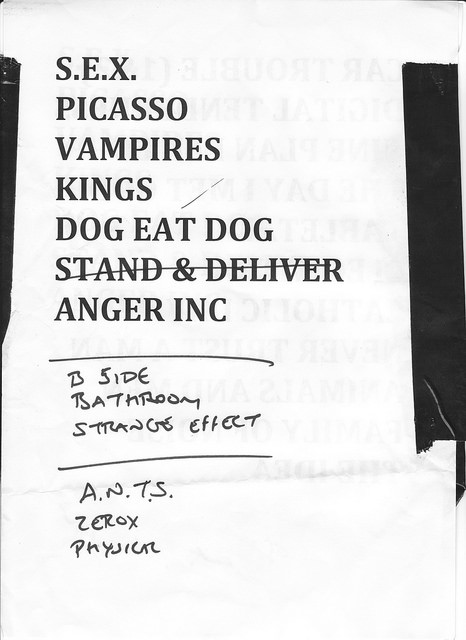 S.E.X.
PICASSO
VAMPIRES
KINGS
DOG EAT DOG
STAND & DELIVER
ANGER INC
B SIDE
BATHROOM
STRANGE EFFECT
A.N.T.S.
ZEROX
PHYSICAL